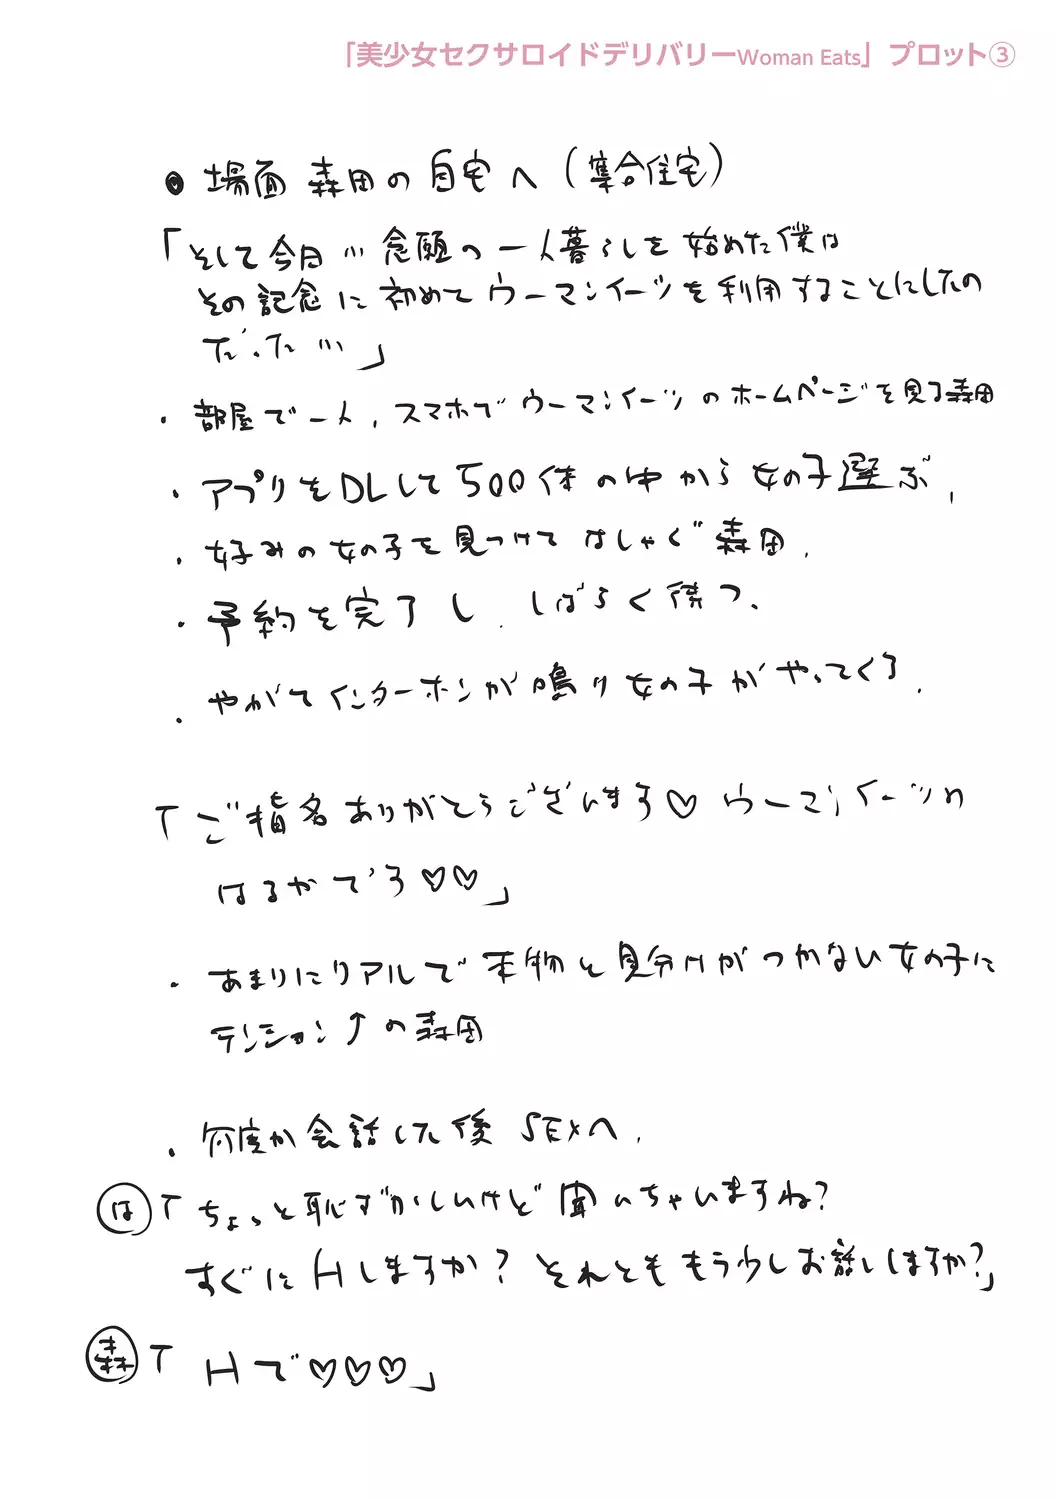 「美少女セクサロイドデリバリーWoman Eats」プロット③
● 場面 森田の自宅へ（集合住宅）
「そして今日… 念願の一人暮らしを始めた僕は
その記念に初めてウーマンイーツを利用することにしたの
だった…」
・部屋で一人、スマホでウーマンイーツのホームページを見る森田
・アプリをDLして500体の中から女の子選ぶ、
・好みの女の子を見つけてはしゃぐ森田、
・予約を完了し、しばらく待つ、
・やがてインターホンが鳴り女の子がやってくる、
「ご指名ありがとうございます♡ ウーマンイーツの
はるかでる♡♡」
・あまりにリアルで本物と見分けがつかない女の子に
テンション↑の森田
・何度か会話した後SEXへ、
は「ちょっと恥ずかしいけど聞いちゃいますね?
すぐにHしますか? それとももう少しお話しますか?」
森「Hで♡♡♡」